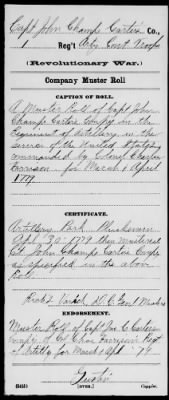 Capt John Champe Carter's Co.,
1 Reg't Arty Cont'l Troops
(Revolutionary War.)
Company Muster Roll
CAPTION OF ROLL.
A Muster Roll of Capt John
Champe Carters Compy in the
Regiment of Artillery in the
service of the United States
commanded by Colonel Charles
Harrison for March & April
1779.
CERTIFICATE.
Artillery Park Pluckemin
April 30th 1779 then mustered
Ct John Champe Carter Compy
as specified in the above
Roll.
D. C. Genl Musters
ENDORSEMENT.
Muster Roll of Capt Jno C. Carters
Compy of Col Chas Harrison's Regt
of Artilly for March & Apl 79
(over.)
Copyist.